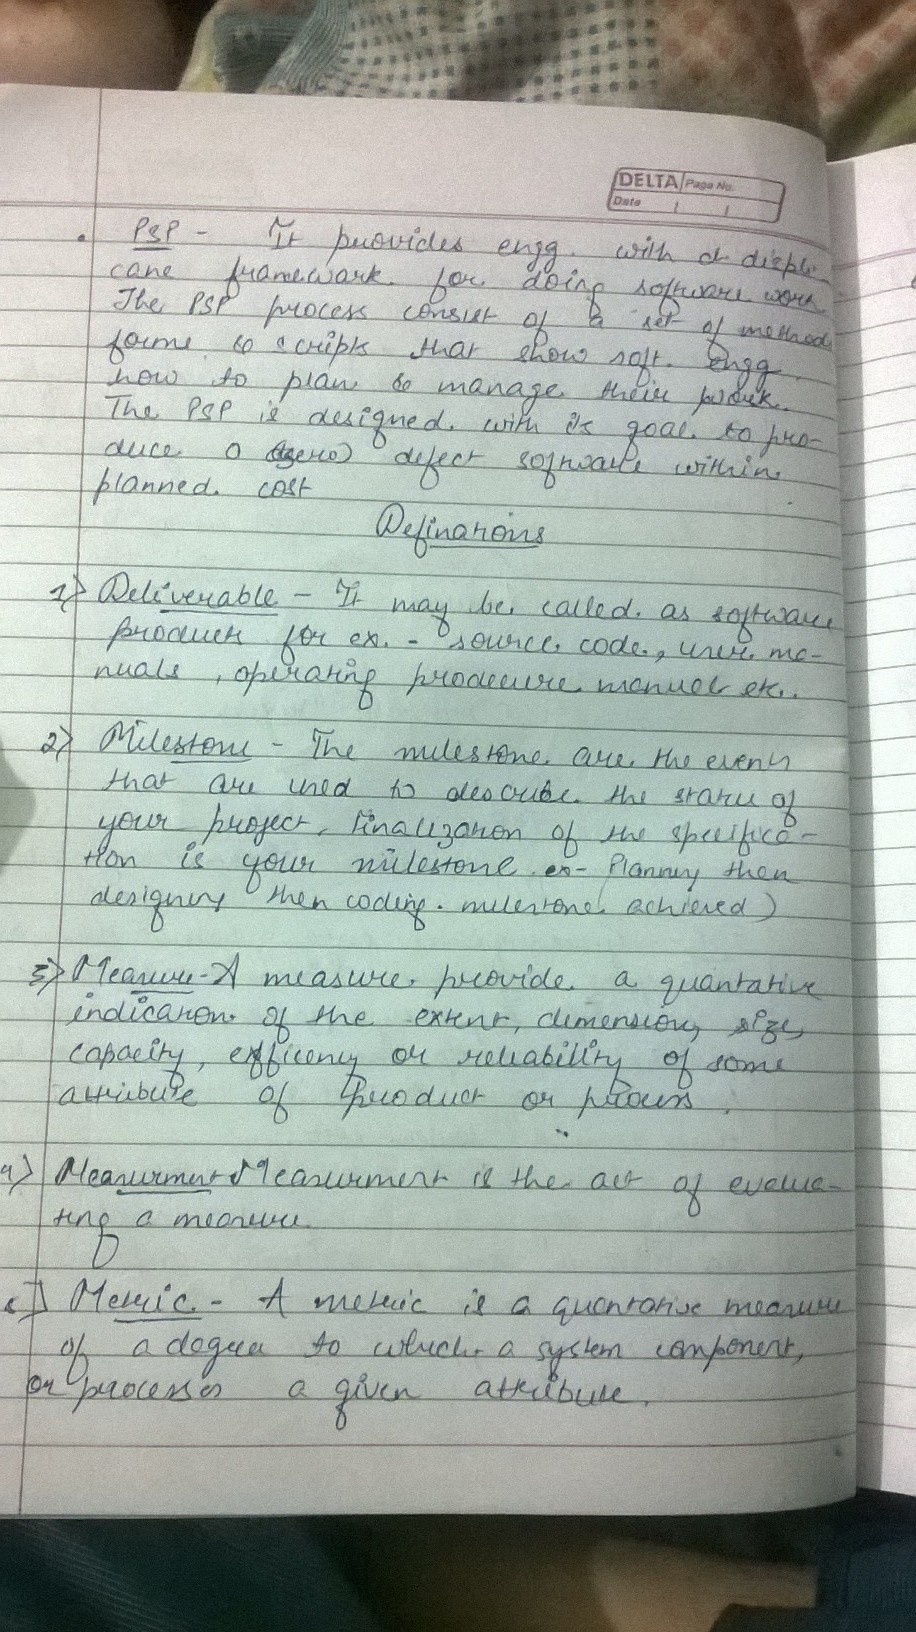 DELTA Page No.
Date / /
• PSP - It provides engg. with a displi-
cane framework for doing software work
The PSP process consist of a set of method
forms & scripts that show soft. engg
how to plan & manage their work.
The PSP is designed with is goal to pro-
duce 0 (zero) defect software within
planned cost
Definations
1) Deliverable - It may be called as software
product for ex. - source code, user ma-
nuals, operating procedure manual etc.
2) Milestone - The milestone are the events
that are used to describe the status of
your project, finalization of the specifica-
tion is your milestone ex- Planning then
designing then coding. milestone achieved)
3) Measure - A measure provide a quantative
indication of the extent, dimension, size,
capacity, efficency or reliability of some
attribute of product or process.
4) Measurment Measurment is the act of evalua-
ting a measure
5) Metric. - A metric is a quantative measure
of a degree to which a system component,
or processes a given attribute.